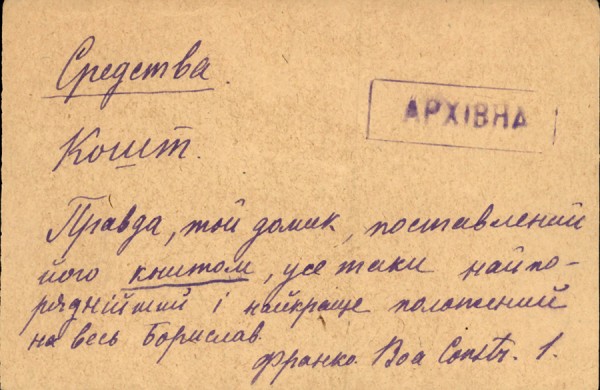 Средства
АРХІВНА
Кошт.
Правда, той домик, поставлений
його коштом, усе таки найпо-
ряднійший і найкраще положений
на весь Борислав.
Франко. Boa Constr. 1.